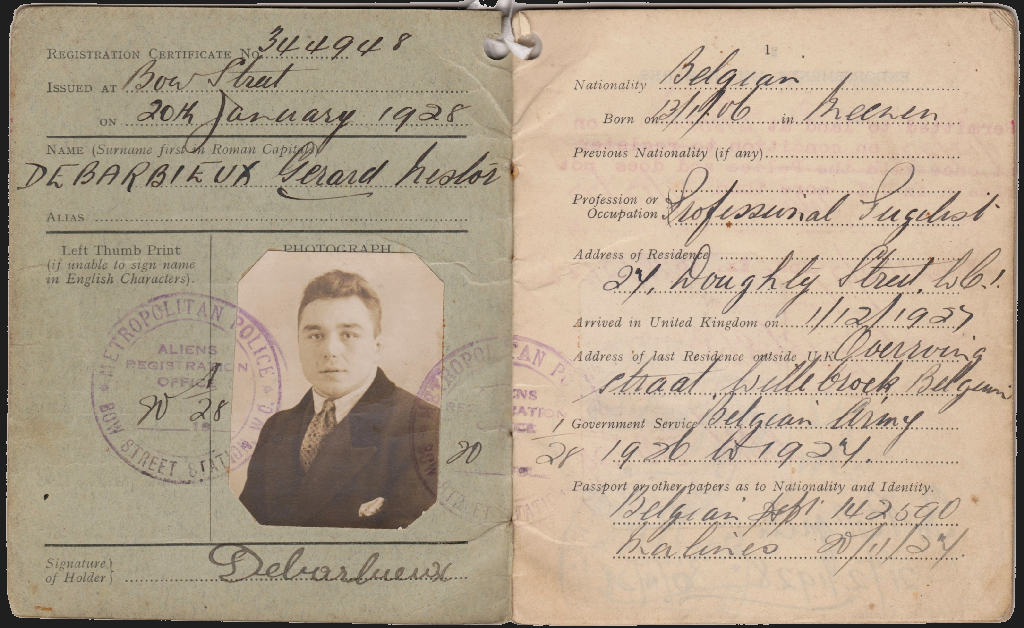 REGISTRATION CERTIFICATE No. 344948
ISSUED AT Bow Street
ON 20th January 1928
NAME (Surname first in Roman Capitals)
DEBARBIEUX Gerard Nestor
ALIAS
Left Thumb Print
(if unable to sign name
in English Characters).
PHOTOGRAPH
METROPOLITAN POLICE
ALIENS
REGISTRATION
OFFICE
20 1 28
19
BOW STREET STATION W.C.
20 1 28
Signature of Holder Debarbieux
1
Nationality Belgian
Born on 12/1/06 in Meenen
Previous Nationality (if any)
Profession or Occupation Professional Pugilist
Address of Residence
27, Doughty Street, W.C.1.
Arrived in United Kingdom on 1/12/1927
Address of last Residence outside U.K.
straat, Willebroek Belgium
Government Service Belgian Army
1926 to 1927.
Passport or other papers as to Nationality and Identity.
Belgian ppt 142590
Malines 20/11/27